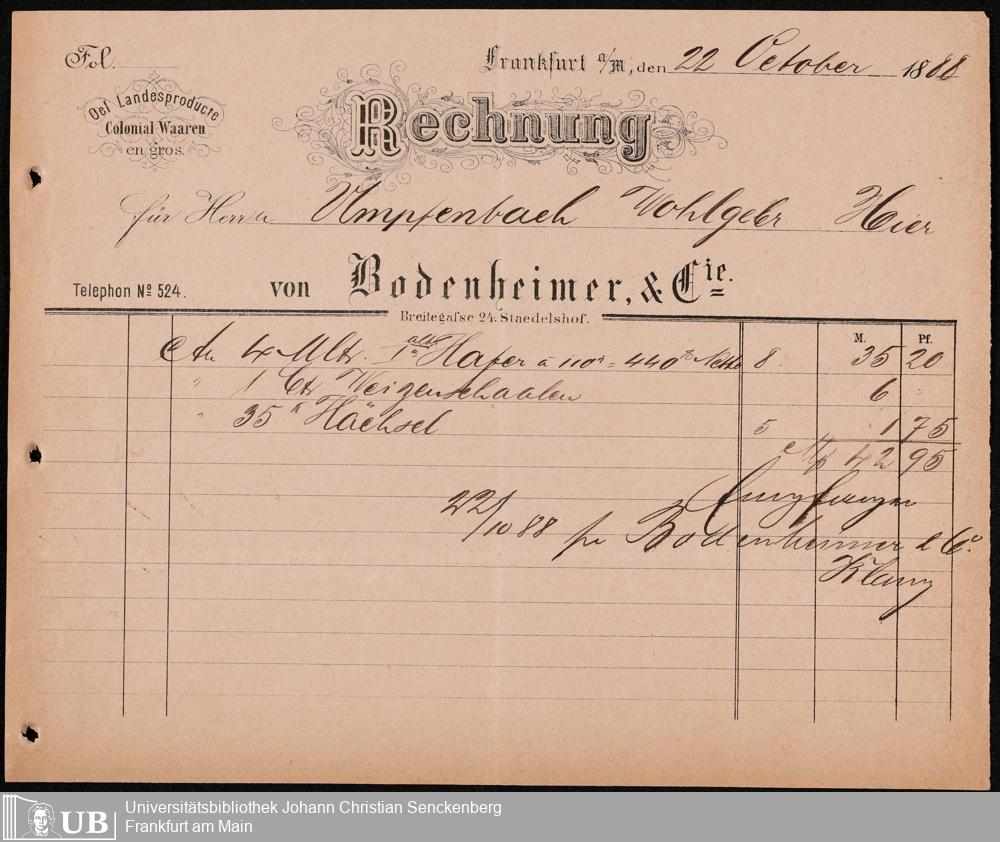 Fol.
Frankfurt a/M, den 22 October 1888
Oel Landesproducte
Colonial-Waaren
en gros.
Rechnung
für Herrn Umpfenbach Wohlgebr Hier
Telephon No 524. von Bodenheimer, & Cie.
Breitegasse 24. Staedelshof.
M. Pf.
An 4 Mltr. alt Ia Hafer a 110 = 440 Netto 8. 35 20
" 1 Ct Weizenschaalen 6 "
" 35 Häcksel 5 1 75
M 42 95
Empfangen
22/10 88 pr Bodenheimer & Co.
Universitätsbibliothek Johann Christian Senckenberg
Frankfurt am Main
UB